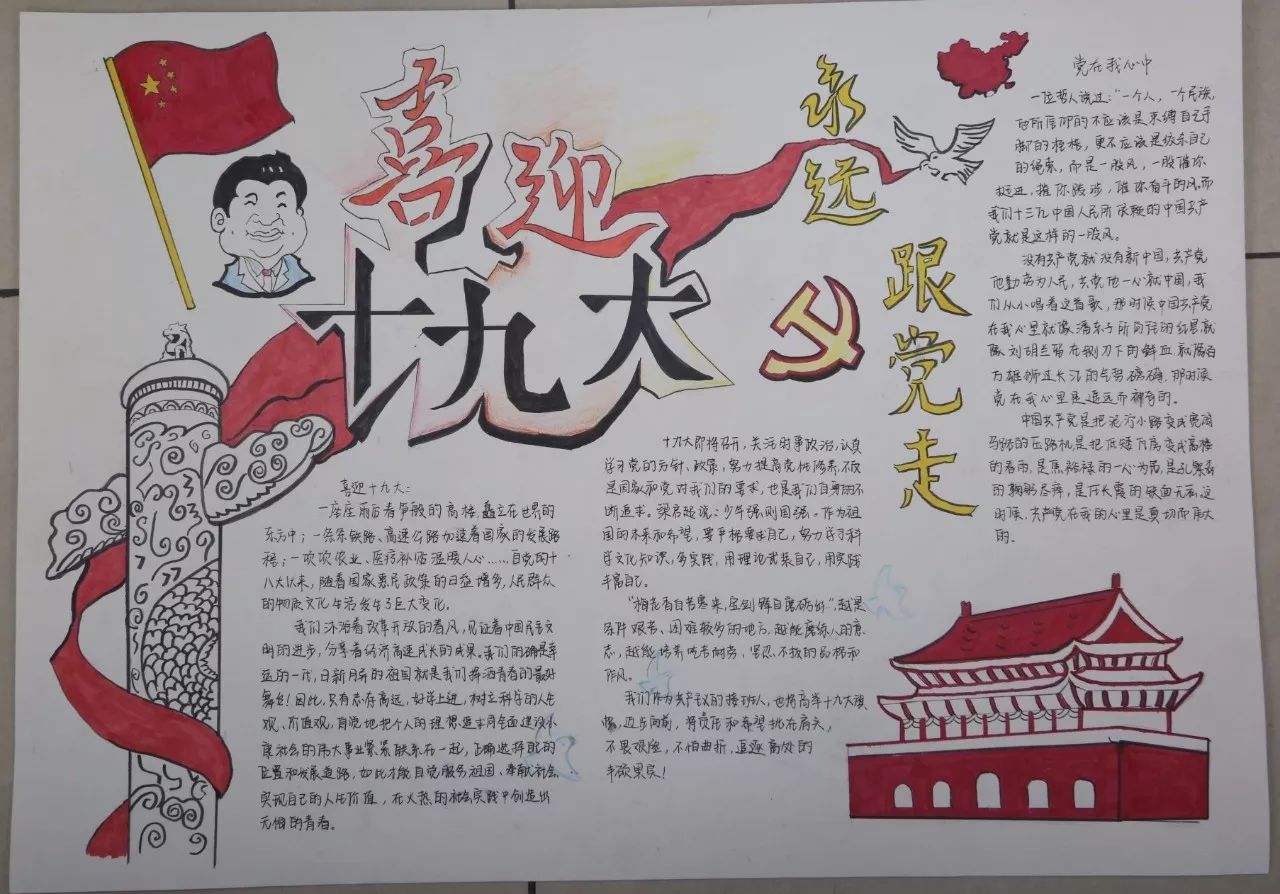 喜迎
十九大
永远
跟党走
党在我心中
一位哲人说过："一个人，一个民族，
他所信仰的不应该是束缚自己手
脚的桎梏，更不应该是绞杀自己
的绳索，而是一股风，一股催你
挺进，推你跋涉，催你奋斗的风。而
我们十三亿中国人民所依赖的中国共产
党就是这样的一股风。
没有共产党就没有新中国，共产党
他勤劳为人民，共产党他一心救中国，我
们从小唱着这首歌，那时候中国共产党
在我心里就像潘冬子所向往的红星就
像刘胡兰留在铡刀下的鲜血，就像百
万雄师过大江的气势磅礴，那时候
党在我心里是遥远而神奇的。
中国共产党是把泥泞小路变成宽阔
马路的压路机是把低矮瓦房变成高楼
的春雨，是焦裕禄的一心为民，是孔繁森
的鞠躬尽瘁，是任长霞的铁血无私，这
时候，共产党在我的心里是真切而伟大
的。
喜迎十九大：
一座座雨后春笋般的高楼矗立在世界的
东方中；一条条铁路、高速公路加速着国家的发展路
程；一次次农业、医疗补贴温暖人心……自党的十
八大以来，随着国家惠民政策的日益增多，人民群众
的物质文化生活发生了巨大变化。
我们沐浴着改革开放的春风，见证着中国民言文
明的进步，分享着经济高速成长的成果。我们的确是幸
运的一代，日新月异的祖国就是我们挥洒青春的最好
舞台！因此，只有志存高远，好学上进，树立科学的人生
观、价值观，自觉地把个人的理想追求同全面建设小
康社会的伟大事业紧紧联系在一起，正确选择自己的
位置和发展道路，如此才能自觉服务祖国、奉献社会
实现自己的人生价值，在火热的社会实践中创造出
无悔的青春。
十九大即将召开，关注时事政治，认真
学习党的方针、政策，努力提高党性修养，不仅
是国家和党对我们的要求，也是我们自身的不
断追求。梁启超说：少年强则国强。作为祖
国的未来和希望，要严格要求自己，努力学习科
学文化知识，多实践，用理论武装自己，用实践
丰富自己。
"梅花香自苦寒来，宝剑锋自磨砺出"，越是
条件艰苦、困难较多的地方，越能磨练人的意
志，越能培养吃苦耐劳，坚忍不拔的品格和
作风。
我们作为共产主义的接班人，也将高举十九大旗
帜，迈步向前，将责任和希望扛在肩头，
不畏艰险，不怕曲折，追逐高处的
丰硕果实！